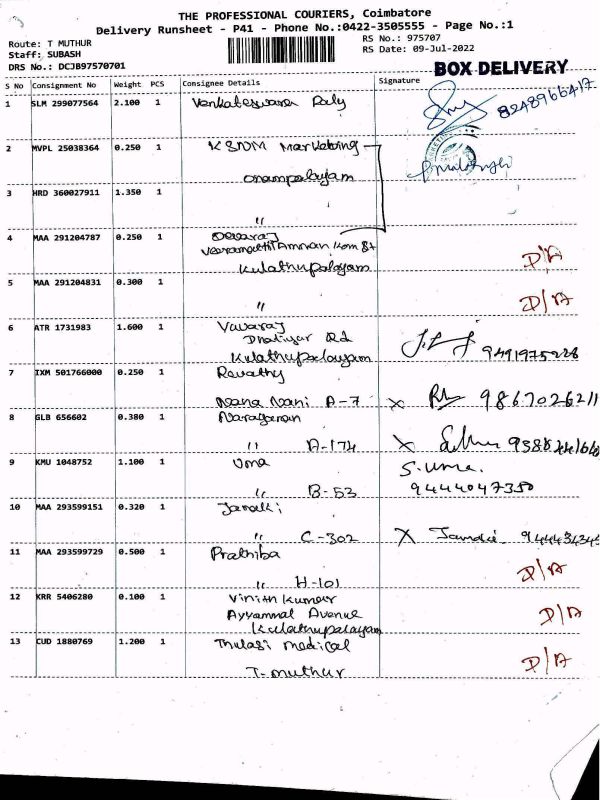 THE PROFESSIONAL COURIERS, Coimbatore
Delivery Runsheet - P41 - Phone No.:0422-3505555 - Page No.:1
Route: T MUTHUR
RS No.: 975707
Staff: SUBASH
RS Date: 09-Jul-2022
DRS No.: DCJB97570701
BOX DELIVERY
S No Consignment No Weight PCS Consignee Details Signature
1 SLM 299077564 2.100 1 Venkateswara Poly
8248966417
2 MVPL 25038364 0.250 1 KSNM Marketing
onampalayam
3 HRD 360027911 1.350 1
"
4 MAA 291204787 0.250 1 Devaraj
Kulathupalayam D/A
5 MAA 291204831 0.300 1
" D/A
6 ATR 1731983 1.600 1 Vavaraj
Dhaliyur Rd
Kulathupalayam
7 IXM 501766000 0.250 1 Revathy
Nana Nani A-7 X 9867026211
8 GLB 656602 0.380 1 Narayanan
" A-174 X
9 KMU 1048752 1.100 1 Uma S. Uma.
" B-53 9444047350
10 MAA 293599151 0.320 1 Janaki
" C-302 X
11 MAA 293599729 0.500 1 Prathiba
" H-101 D/A
12 KRR 5406280 0.100 1 Vinith Kumar
Ayyammal Avenue D/A
Kulathupalayam
13 CUD 1880769 1.200 1 Thulasi medical
T-muthur D/A